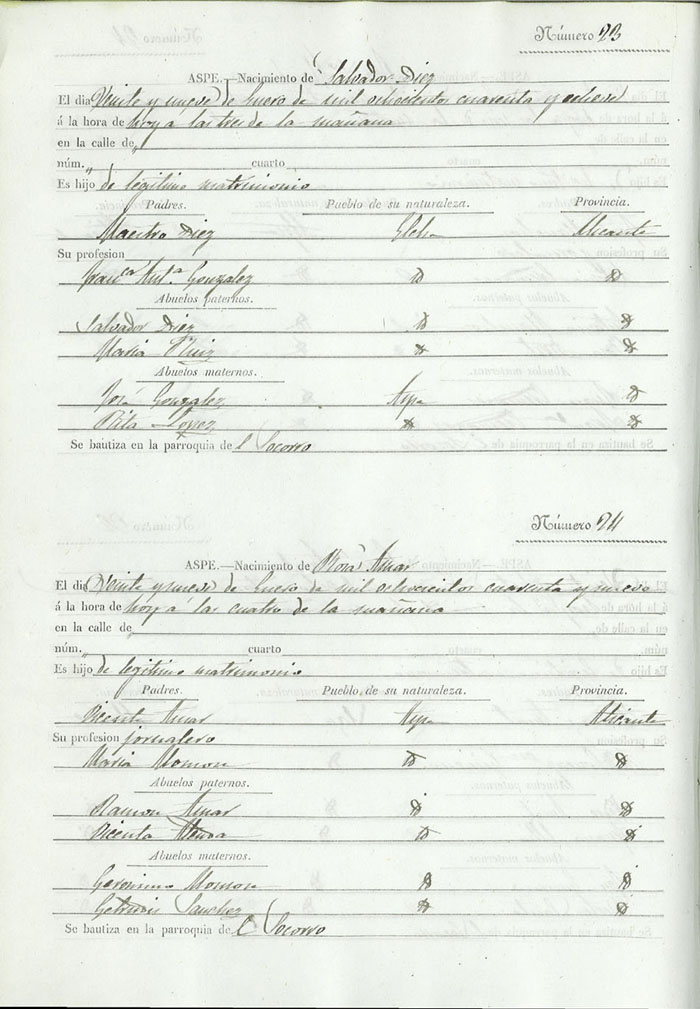 Número 23
ASPE.—Nacimiento de Salvador Diez
El dia Veinte y nueve de Enero de mil ochocientos cuarenta y
á la hora de hoy á las tres de la mañana
en la calle de „
núm. „ cuarto
Es hijo de legitimo matrimonio
Padres. Pueblo de su naturaleza. Provincia.
Maestro Diez Elche Alicante
Su profesion
Franca Anta Gonzalez id id
Abuelos paternos.
Salvador Diez id id
Maria Ruiz id id
Abuelos maternos.
José Gonzalez Aspe id
Rita Lopez id id
Se bautiza en la parroquia de l Socorro
Número 24
ASPE.—Nacimiento de Amar
El dia Veinte y nueve de Enero de mil ochocientos cuarenta y nueve
á la hora de hoy á las cuatro de la mañana
en la calle de „
núm. „ cuarto
Es hijo de legitimo matrimonio
Padres. Pueblo de su naturaleza. Provincia.
Vicente Amar Aspe Alicante
Su profesion jornalero
Maria id id
Abuelos paternos.
Ramon Amar id id
Vicenta id id
Abuelos maternos.
Geronimo id id
Sanchez id id
Se bautiza en la parroquia de l Socorro